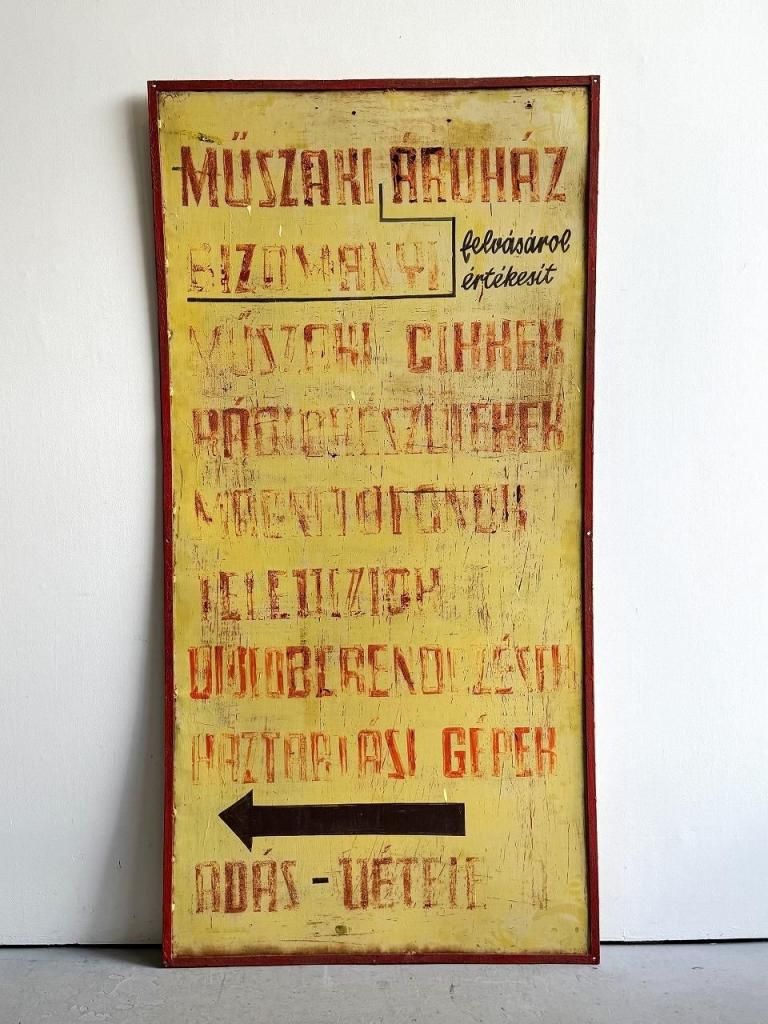 MŰSZAKI ÁRUHÁZ
BIZOMÁNYI felvásárol
értékesit
MŰSZAKI CIKKEK
RÁDIÓKÉSZÜLÉKEK
MAGNETOFONOK
TELEVIZIÓK
VIDEOBERENDEZÉSEK
HÁZTARTÁSI GÉPEK
ADÁS - VÉTELE